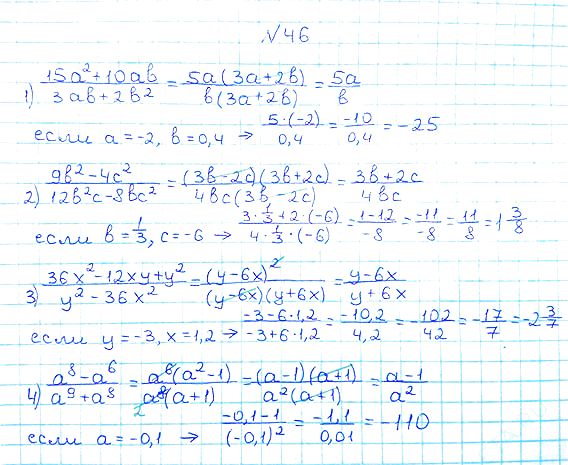 №46
1) (15a²+10ab)/(3ab+2b²) = (5a(3a+2b))/(b(3a+2b)) = 5a/b
если a=-2, b=0,4 → (5·(-2))/0,4 = -10/0,4 = -25
2) (9b²-4c²)/(12b²c-8bc²) = ((3b-2c)(3b+2c))/(4bc(3b-2c)) = (3b+2c)/(4bc)
если b=1/3, c=-6 → (3·1/3+2·(-6))/(4·1/3·(-6)) = (1-12)/(-8) = -11/-8 = 11/8 = 1 3/8
3) (36x²-12xy+y²)/(y²-36x²) = (y-6x)²/((y-6x)(y+6x)) = (y-6x)/(y+6x)
если y=-3, x=1,2 → (-3-6·1,2)/(-3+6·1,2) = -10,2/4,2 = -102/42 = -17/7 = -2 3/7
4) (a⁸-a⁶)/(a⁹+a⁸) = (a⁶(a²-1))/(a⁸(a+1)) = ((a-1)(a+1))/(a²(a+1)) = (a-1)/a²
2
если a=-0,1 → (-0,1-1)/(-0,1)² = -1,1/0,01 = -110